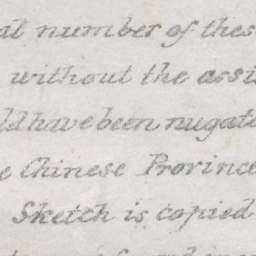 al number of thes
without the assi
ld have been nugato
e Chinese Province
Sketch is copied